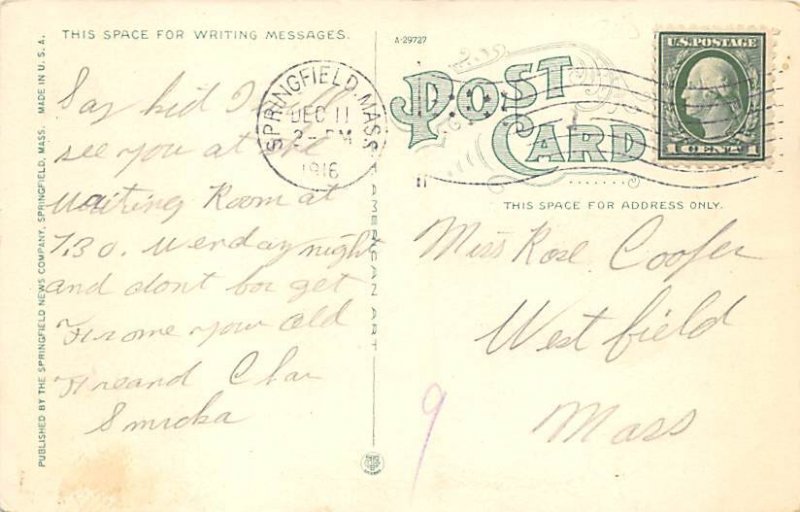 THIS SPACE FOR WRITING MESSAGES.
Say kid I will
see you at the
Waiting Room at
7.30. Wenday night
and dont for get
Frome your old
Freand Char
Smidka
PUBLISHED BY THE SPRINGFIELD NEWS COMPANY, SPRINGFIELD, MASS. MADE IN U. S. A.
C.T. AMERICAN ART
SPRINGFIELD, MASS.
DEC 11
2 - PM
1916
A-29727
POST CARD
U.S. POSTAGE
1 CENT 1
THIS SPACE FOR ADDRESS ONLY.
Miss Rose Cooper
Westfield
Mass
9